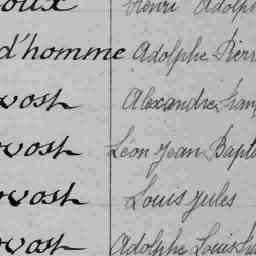 oux Henri Adolph
d'homme Adolphe Pierr
vost Alexandre Fran
ovost Léon Jean Bapt
ovost Louis Jules
ovost Adolphe Louis